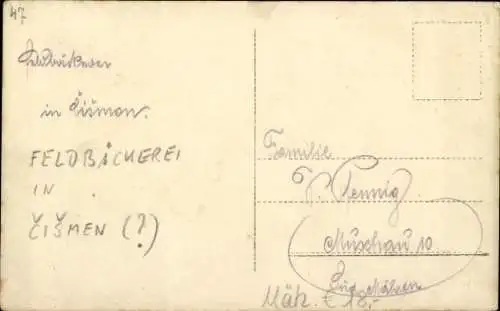 47
Feldbäckerei
in Čišmen.
FELDBÄCKEREI
IN
ČIŠMEN (?)
Familie
Hennig
Muschau 10
Süd Mähren
Mäh. € 18,-